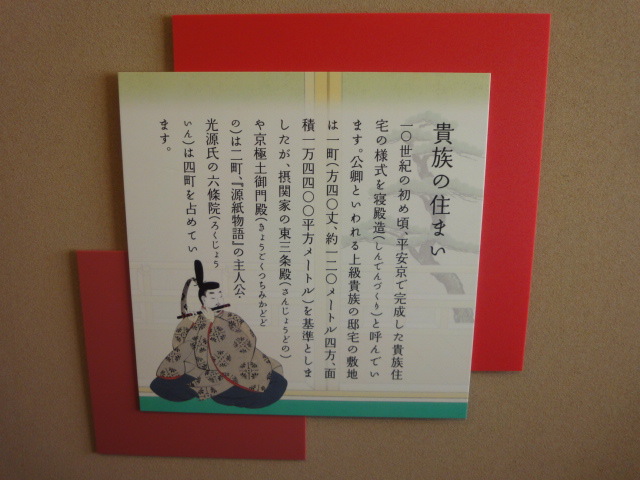 貴族の住まい
一〇世紀の初め頃、平安京で完成した貴族住
宅の様式を寝殿造(しんでんづくり)と呼んでい
ます。公卿といわれる上級貴族の邸宅の敷地
は一町(方四〇丈、約一二〇メートル四方、面
積一万四四〇〇平方メートル)を基準としま
したが、摂関家の東三条殿(さんじょうどの)
や京極土御門殿(きょうごくつちみかどど
の)は二町、『源紙物語』の主人公・
光源氏の六條院(ろくじょう
いん)は四町を占めてい
ます。